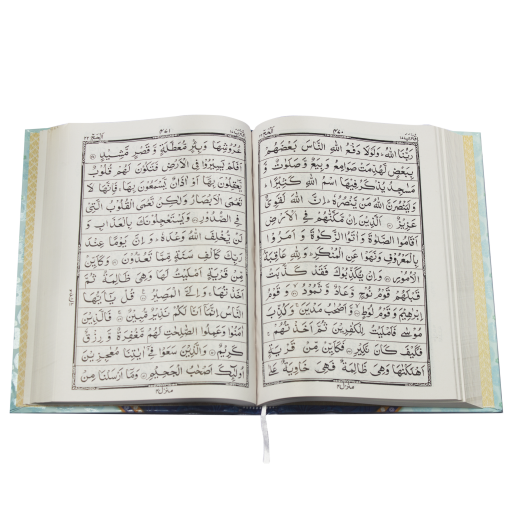 ٤٧٠
رَبُّنَا اللّٰهُ ؕ وَلَوْلَا دَفْعُ اللّٰهِ النَّاسَ بَعْضَهُمْ
بِبَعْضٍ لَّهُدِّمَتْ صَوَامِعُ وَ بِيَعٌ وَّ صَلَوٰتٌ وَّ
مَسٰجِدُ يُذْكَرُ فِيْهَا اسْمُ اللّٰهِ كَثِيْرًا ؕ
وَلَيَنْصُرَنَّ اللّٰهُ مَنْ يَّنْصُرُهٗ ؕ اِنَّ اللّٰهَ لَقَوِيٌّ
عَزِيْزٌ ۝ اَلَّذِيْنَ اِنْ مَّكَّنّٰهُمْ فِي الْاَرْضِ
اَقَامُوا الصَّلٰوةَ وَ اٰتَوُا الزَّكٰوةَ وَ اَمَرُوْا
بِالْمَعْرُوْفِ وَ نَهَوْا عَنِ الْمُنْكَرِ ؕ وَ لِلّٰهِ عَاقِبَةُ
الْاُمُوْرِ ۝ وَ اِنْ يُّكَذِّبُوْكَ فَقَدْ كَذَّبَتْ
قَبْلَهُمْ قَوْمُ نُوْحٍ وَّ عَادٌ وَّ ثَمُوْدُ ۝ وَ قَوْمُ
اِبْرٰهِيْمَ وَ قَوْمُ لُوْطٍ ۝ وَّ اَصْحٰبُ مَدْيَنَ ۚ وَ كُذِّبَ
مُوْسٰى فَاَمْلَيْتُ لِلْكٰفِرِيْنَ ثُمَّ اَخَذْتُهُمْ ۚ
فَكَيْفَ كَانَ نَكِيْرِ ۝ فَكَاَيِّنْ مِّنْ قَرْيَةٍ
اَهْلَكْنٰهَا وَ هِيَ ظَالِمَةٌ فَهِيَ خَاوِيَةٌ عَلٰى
٤٧١
عُرُوْشِهَا وَ بِئْرٍ مُّعَطَّلَةٍ وَّ قَصْرٍ مَّشِيْدٍ ۝
اَفَلَمْ يَسِيْرُوْا فِي الْاَرْضِ فَتَكُوْنَ لَهُمْ قُلُوْبٌ
يَّعْقِلُوْنَ بِهَاۤ اَوْ اٰذَانٌ يَّسْمَعُوْنَ بِهَا ۚ فَاِنَّهَا لَا
تَعْمَى الْاَبْصَارُ وَ لٰكِنْ تَعْمَى الْقُلُوْبُ الَّتِيْ
فِي الصُّدُوْرِ ۝ وَ يَسْتَعْجِلُوْنَكَ بِالْعَذَابِ وَ
لَنْ يُّخْلِفَ اللّٰهُ وَعْدَهٗ ؕ وَ اِنَّ يَوْمًا عِنْدَ
رَبِّكَ كَاَلْفِ سَنَةٍ مِّمَّا تَعُدُّوْنَ ۝ وَ كَاَيِّنْ
مِّنْ قَرْيَةٍ اَمْلَيْتُ لَهَا وَ هِيَ ظَالِمَةٌ ثُمَّ
اَخَذْتُهَا ۚ وَ اِلَيَّ الْمَصِيْرُ ۝ قُلْ يٰۤاَيُّهَا
النَّاسُ اِنَّمَاۤ اَنَا لَكُمْ نَذِيْرٌ مُّبِيْنٌ ۝ فَالَّذِيْنَ
اٰمَنُوْا وَ عَمِلُوا الصّٰلِحٰتِ لَهُمْ مَّغْفِرَةٌ وَّ رِزْقٌ
كَرِيْمٌ ۝ وَ الَّذِيْنَ سَعَوْا فِيْۤ اٰيٰتِنَا مُعٰجِزِيْنَ
اُولٰٓئِكَ اَصْحٰبُ الْجَحِيْمِ ۝ وَ مَاۤ اَرْسَلْنَا مِنْ